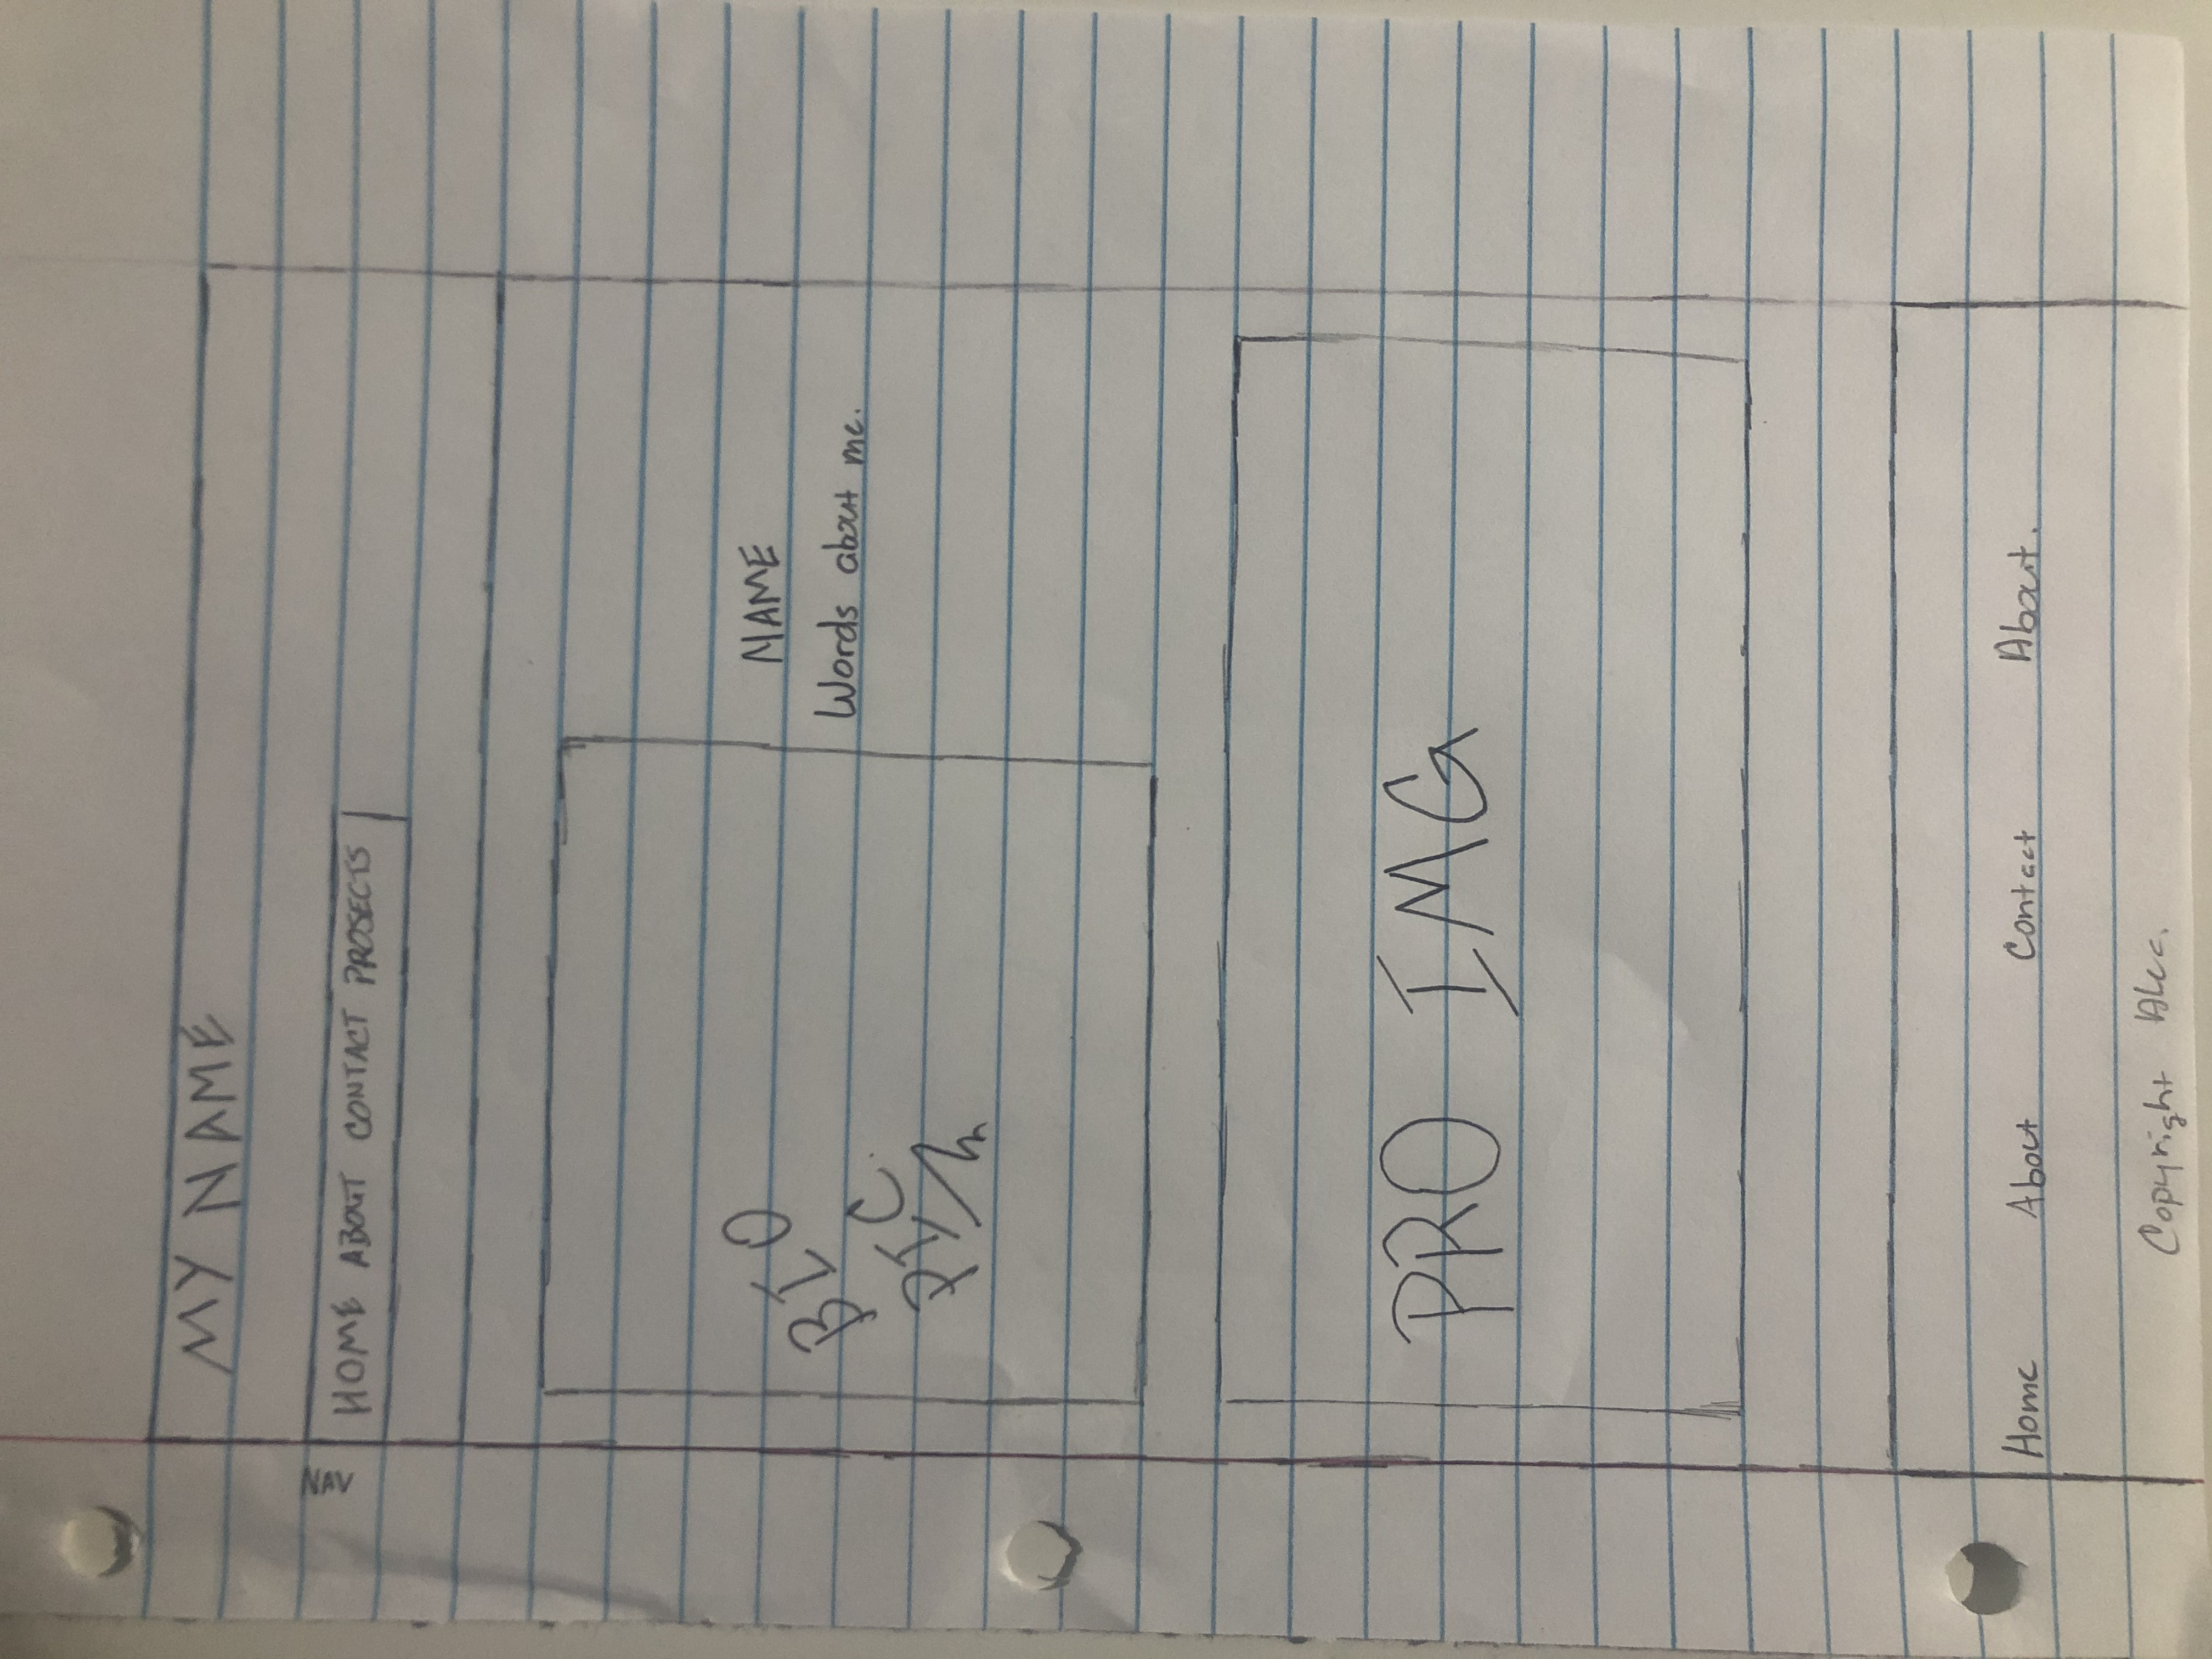 MY NAME
NAV
HOME ABOUT CONTACT PROJECTS
BIO
PIC
NAME
Words about me.
PRO IMG
Home About Contact About.
Copyright Alec.